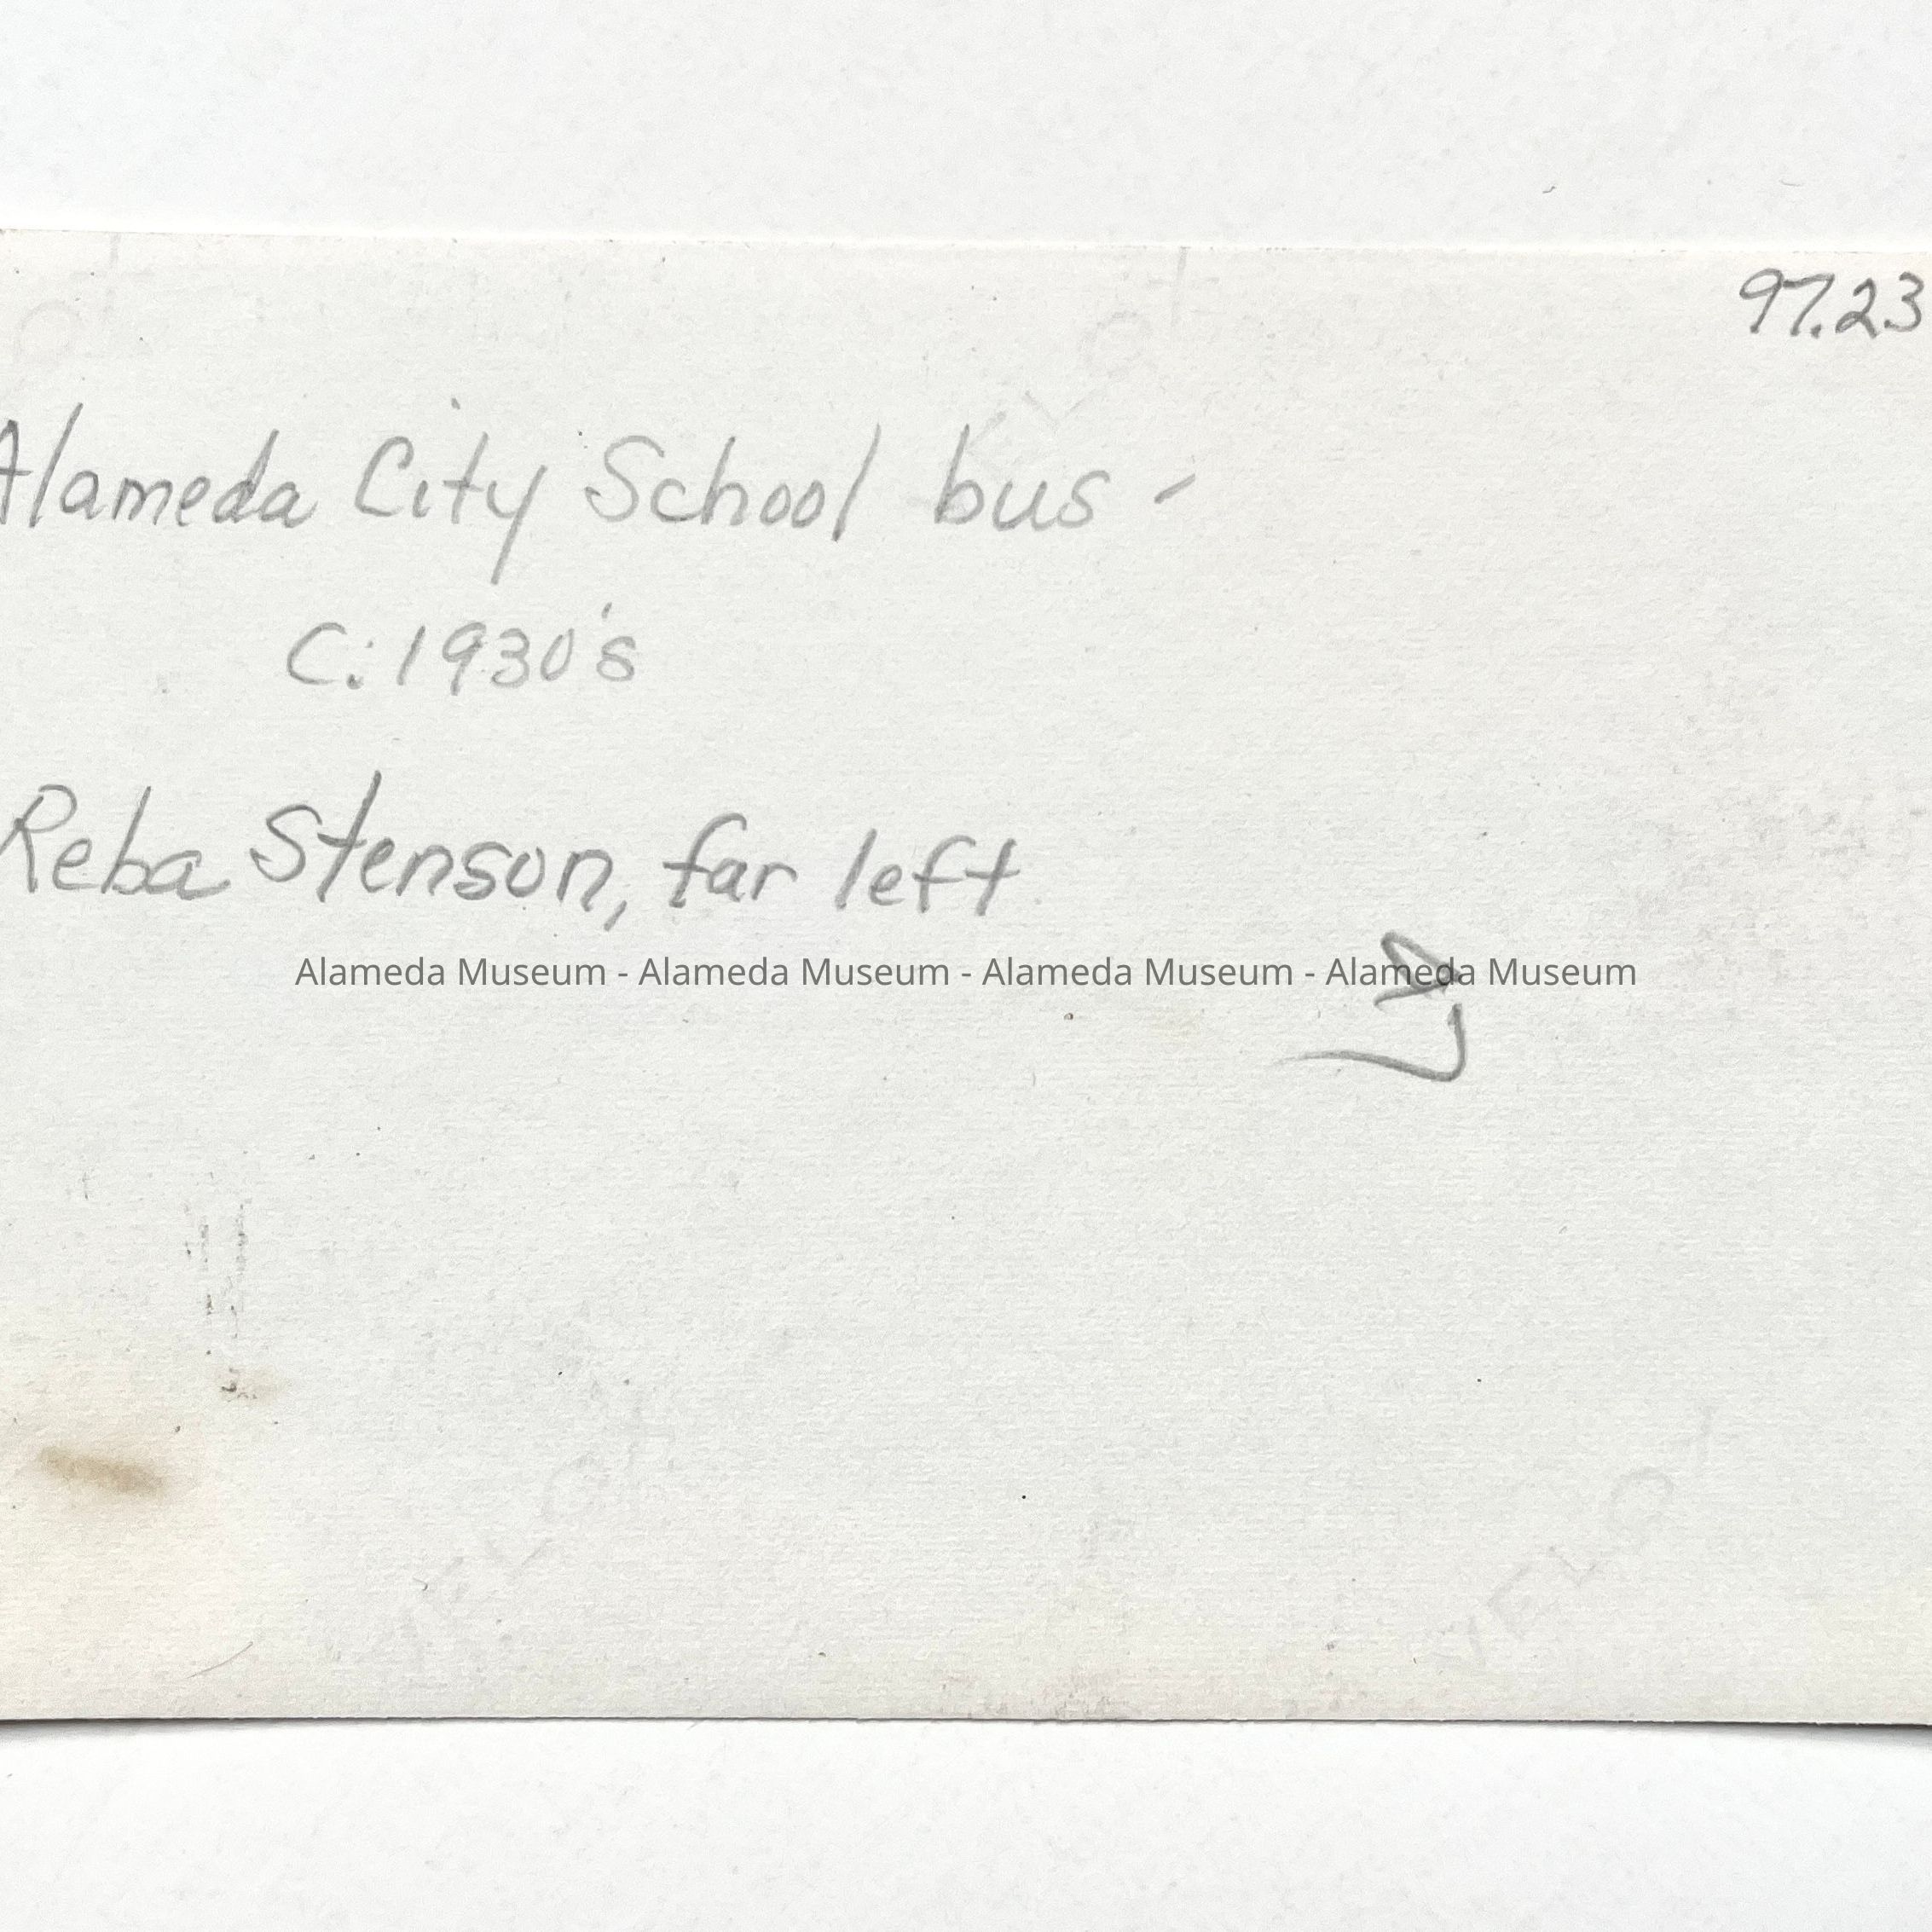 97.23
Alameda City School bus -
C. 1930's
Reba Stenson, far left
Alameda Museum - Alameda Museum - Alameda Museum - Alameda Museum
VELO